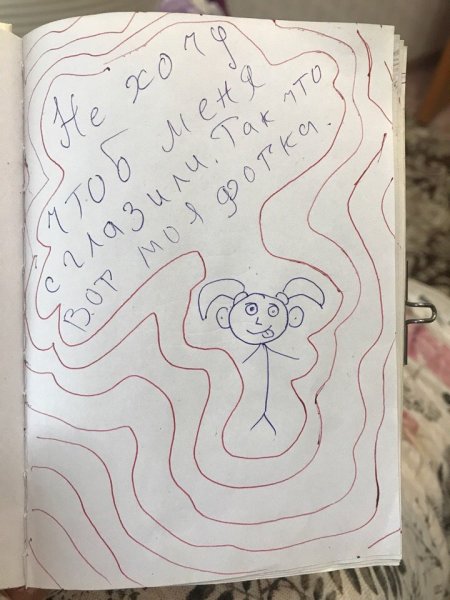 Не хочу
чтоб меня
сглазили. Так что
Вот моя фотка.